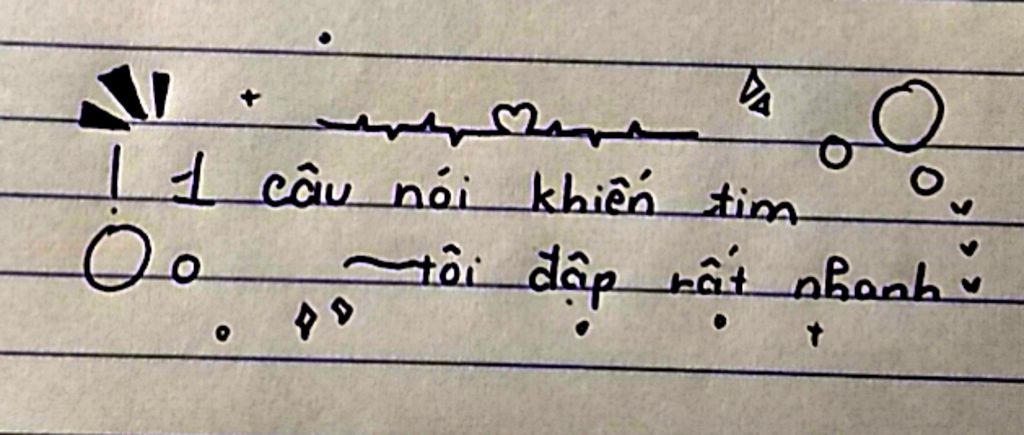 ! 1 câu nói khiến tim
~tôi đập rất nhanh